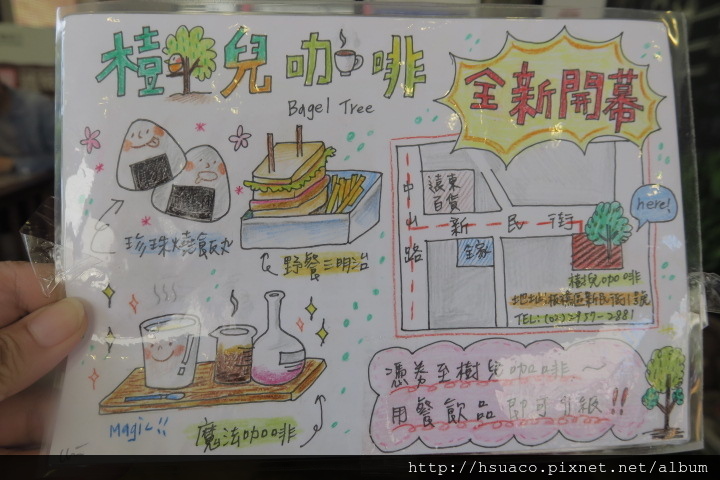 樹兒咖啡
Bagel Tree
全新開幕
珍珠燒飯丸
野餐三明治
Magic!!
魔法咖啡
遠東
百貨
中山路
新民街
全家
here!
樹兒咖啡
地址:板橋區新民街1號
TEL:(02)2957-2881
憑券至樹兒咖啡~
用餐飲品即可
!!
http://hsuaco.pixnet.net/album